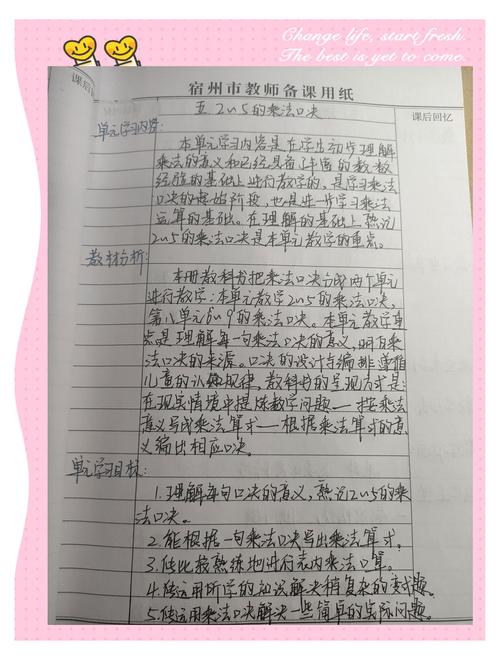 Change life, start fresh.
The best is yet to come.
宿州市教师备课用纸
课后
课后回忆
五 2~5的乘法口决
单元学习内容:
本单元学习内容是在学生初步理解
乘法的意义和已经具备了丰富的数数
经验的基础上进行教学的,是学习乘法
口决的起始阶段,也是进一步学习乘法
运算的基础。在理解的基础上熟记
2~5的乘法口决是本单元教学的重点。
教材分析:
本册教科书把乘法口决分成两个单元
进行教学:本单元教学2~5的乘法口决,
第八单元6~9的乘法口决。本单元教学重
点是理解每一句乘法口决的意义,明白乘
法口决的来源。口决的设计与编排遵循
儿童的认知规律,教科书的呈现方式是:
在现实情境中提炼数学问题——按乘法
意义写成乘法算式——根据乘法算式的意
义编出相应口决。
单元学习目标:
1.理解每句口决的意义,熟记2~5的乘
法口决。
2.能根据一句乘法口决写出乘法算式。
3.能比较熟练地进行表内乘法口算。
4.能运用所学的知识解决稍复杂的变式题。
5.能运用乘法口决解决一些简单的实际问题。